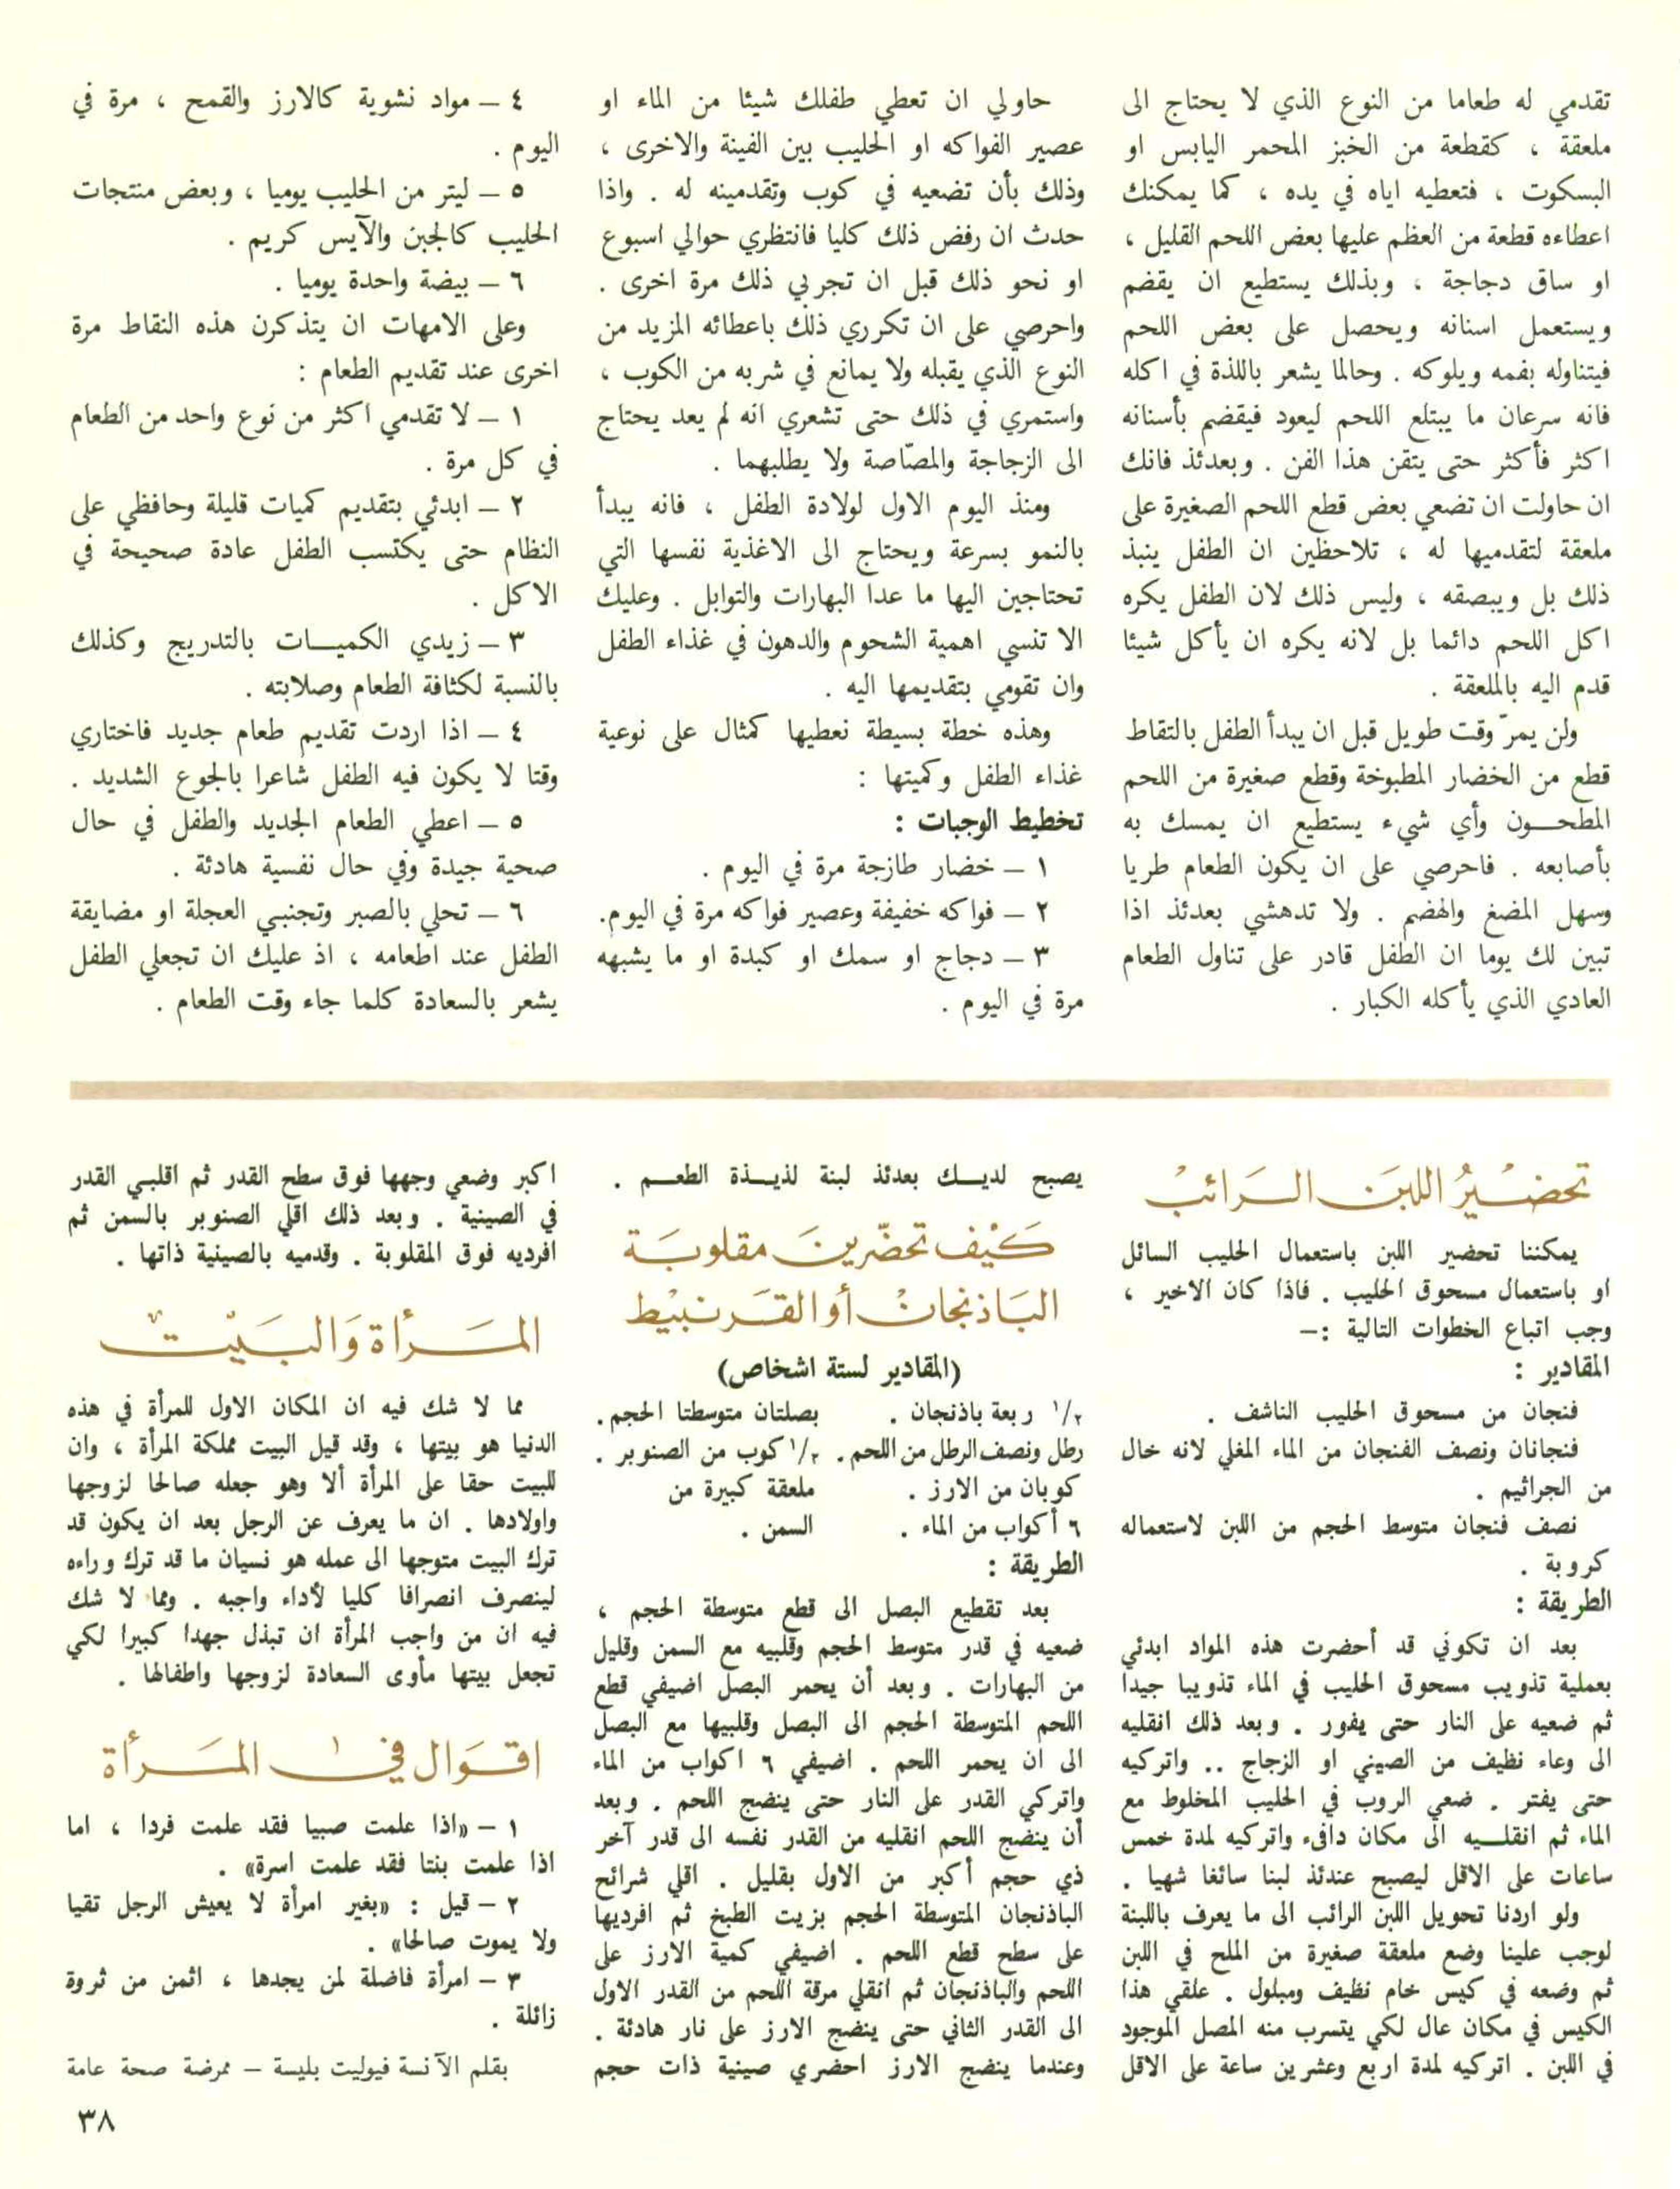 تقدمي له طعاما من النوع الذي لا يحتاج الى
ملعقة ، كقطعة من الخبز المحمر اليابس او
البسكوت ، فتعطيه اياه في يده ، كما يمكنك
اعطاءه قطعة من العظم عليها بعض اللحم القليل ،
او ساق دجاجة ، وبذلك يستطيع ان يقضم
ويستعمل اسنانه ويحصل على بعض اللحم
فيتناوله بفمه ويلوكه . وحالما يشعر باللذة في اكله
فانه سرعان ما يبتلع اللحم ليعود فيقضم بأسنانه
اكثر فأكثر حتى يتقن هذا الفن . وبعدئذ فانك
ان حاولت ان تضعي بعض قطع اللحم الصغيرة على
ملعقة لتقدميها له ، تلاحظين ان الطفل ينبذ
ذلك بل ويبصقه ، وليس ذلك لان الطفل يكره
اكل اللحم دائما بل لانه يكره ان يأكل شيئا
قدم اليه بالملعقة .
ولن يمرّ وقت طويل قبل ان يبدأ الطفل بالتقاط
قطع من الخضار المطبوخة وقطع صغيرة من اللحم
المطحــون وأي شيء يستطيع ان يمسك به
بأصابعه . فاحرصي على ان يكون الطعام طريا
وسهل المضغ والهضم . ولا تدهشي بعدئذ اذا
تبين لك يوما ان الطفل قادر على تناول الطعام
العادي الذي يأكله الكبار .
حاولي ان تعطي طفلك شيئا من الماء او
عصير الفواكه او الحليب بين الفينة والاخرى ،
وذلك بأن تضعيه في كوب وتقدمينه له . واذا
حدث ان رفض ذلك كليا فانتظري حوالي اسبوع
او نحو ذلك قبل ان تجربي ذلك مرة اخرى .
واحرصي على ان تكرري ذلك باعطائه المزيد من
النوع الذي يقبله ولا يمانع في شربه من الكوب ،
واستمري في ذلك حتى تشعري انه لم يعد يحتاج
الى الزجاجة والمصّاصة ولا يطلبهما .
ومنذ اليوم الاول لولادة الطفل ، فانه يبدأ
بالنمو بسرعة ويحتاج الى الاغذية نفسها التي
تحتاجين اليها ما عدا البهارات والتوابل . وعليك
الا تنسي اهمية الشحوم والدهون في غذاء الطفل
وان تقومي بتقديمها اليه .
وهذه خطة بسيطة نعطيها كمثال على نوعية
غذاء الطفل وكميتها :
تخطيط الوجبات :
١ – خضار طازجة مرة في اليوم .
٢ – فواكه خفيفة وعصير فواكه مرة في اليوم.
٣ – دجاج او سمك او كبدة او ما يشبهه
مرة في اليوم .
٤ – مواد نشوية كالارز والقمح ، مرة في
اليوم .
٥ – ليتر من الحليب يوميا ، وبعض منتجات
الحليب كالجبن والآيس كريم .
٦ – بيضة واحدة يوميا .
وعلى الامهات ان يتذكرن هذه النقاط مرة
اخرى عند تقديم الطعام :
١ – لا تقدمي اكثر من نوع واحد من الطعام
في كل مرة .
٢ – ابدئي بتقديم كميات قليلة وحافظي على
النظام حتى يكتسب الطفل عادة صحيحة في
الاكل .
٣ – زيدي الكميــات بالتدريج وكذلك
بالنسبة لكثافة الطعام وصلابته .
٤ – اذا اردت تقديم طعام جديد فاختاري
وقتا لا يكون فيه الطفل شاعرا بالجوع الشديد .
٥ – اعطي الطعام الجديد والطفل في حال
صحية جيدة وفي حال نفسية هادئة .
٦ – تحلي بالصبر وتجنبي العجلة او مضايقة
الطفل عند اطعامه ، اذ عليك ان تجعلي الطفل
يشعر بالسعادة كلما جاء وقت الطعام .
تحضيرُ اللبَن الرَائب
يمكننا تحضير اللبن باستعمال الحليب السائل
او باستعمال مسحوق الحليب . فاذا كان الاخير ،
وجب اتباع الخطوات التالية :–
المقادير :
فنجان من مسحوق الحليب الناشف .
فنجانان ونصف الفنجان من الماء المغلي لانه خال
من الجراثيم .
نصف فنجان متوسط الحجم من اللبن لاستعماله
كروبة .
الطريقة :
بعد ان تكوني قد أحضرت هذه المواد ابدئي
بعملية تذويب مسحوق الحليب في الماء تذويبا جيدا
ثم ضعيه على النار حتى يفور . وبعد ذلك انقليه
الى وعاء نظيف من الصيني او الزجاج .. واتركيه
حتى يفتر . ضعي الروب في الحليب المخلوط مع
الماء ثم انقلــيه الى مكان دافىء واتركيه لمدة خمس
ساعات على الاقل ليصبح عندئذ لبنا سائغا شهيا .
ولو اردنا تحويل اللبن الرائب الى ما يعرف باللبنة
لوجب علينا وضع ملعقة صغيرة من الملح في اللبن
ثم وضعه في كيس خام نظيف ومبلول . علقي هذا
الكيس في مكان عال لكي يتسرب منه المصل الموجود
في اللبن . اتركيه لمدة اربع وعشرين ساعة على الاقل
يصبح لديــك بعدئذ لبنة لذيــذة الطعــم .
كَيْف تحضّرين مقلوبَة
البَاذنجان أو القَرنبيْط
(المقادير لستة اشخاص)
١/٢ ربعة باذنجان . بصلتان متوسطتا الحجم.
رطل ونصف الرطل من اللحم. ١/٢ كوب من الصنوبر .
كوبان من الارز . ملعقة كبيرة من
٦ أكواب من الماء . السمن .
الطريقة :
بعد تقطيع البصل الى قطع متوسطة الحجم ،
ضعيه في قدر متوسط الحجم وقلبيه مع السمن وقليل
من البهارات . وبعد أن يحمر البصل اضيفي قطع
اللحم المتوسطة الحجم الى البصل وقلبيها مع البصل
الى ان يحمر اللحم . اضيفي ٦ اكواب من الماء
واتركي القدر على النار حتى ينضج اللحم . وبعد
أن ينضج اللحم انقليه من القدر نفسه الى قدر آخر
ذي حجم أكبر من الاول بقليل . اقلي شرائح
الباذنجان المتوسطة الحجم بزيت الطبخ ثم افرديها
على سطح قطع اللحم . اضيفي كمية الارز على
اللحم والباذنجان ثم انقلي مرقة اللحم من القدر الاول
الى القدر الثاني حتى ينضج الارز على نار هادئة .
وعندما ينضج الارز احضري صينية ذات حجم
اكبر وضعي وجهها فوق سطح القدر ثم اقلبي القدر
في الصينية . وبعد ذلك اقلي الصنوبر بالسمن ثم
افرديه فوق المقلوبة . وقدميه بالصينية ذاتها .
المَرأة وَالبَيْت
مما لا شك فيه ان المكان الاول للمرأة في هذه
الدنيا هو بيتها ، وقد قيل البيت مملكة المرأة ، وان
للبيت حقا على المرأة ألا وهو جعله صالحا لزوجها
واولادها . ان ما يعرف عن الرجل بعد ان يكون قد
ترك البيت متوجها الى عمله هو نسيان ما قد ترك وراءه
لينصرف انصرافا كليا لأداء واجبه . ومما لا شك
فيه ان من واجب المرأة ان تبذل جهدا كبيرا لكي
تجعل بيتها مأوى السعادة لزوجها واطفالها .
اقوَال في المَرأة
١ – «اذا علمت صبيا فقد علمت فردا ، اما
اذا علمت بنتا فقد علمت اسرة» .
٢ – قيل : «بغير امرأة لا يعيش الرجل تقيا
ولا يموت صالحا» .
٣ – امرأة فاضلة لمن يجدها ، اثمن من ثروة
زائلة .
بقلم الآنسة فيوليت بليسة – ممرضة صحة عامة
٣٨